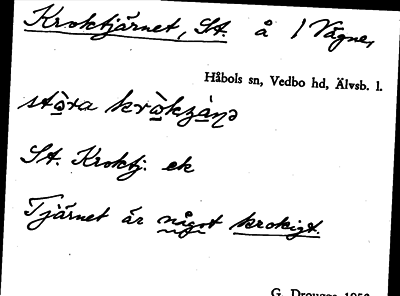 Kroktjärnet, St. å 1 Vägne,
Håbols sn, Vedbo hd, Älvsb. l.
stòra kròkzànə
St. Kroktj. ek
Tjärnet är något krokigt.